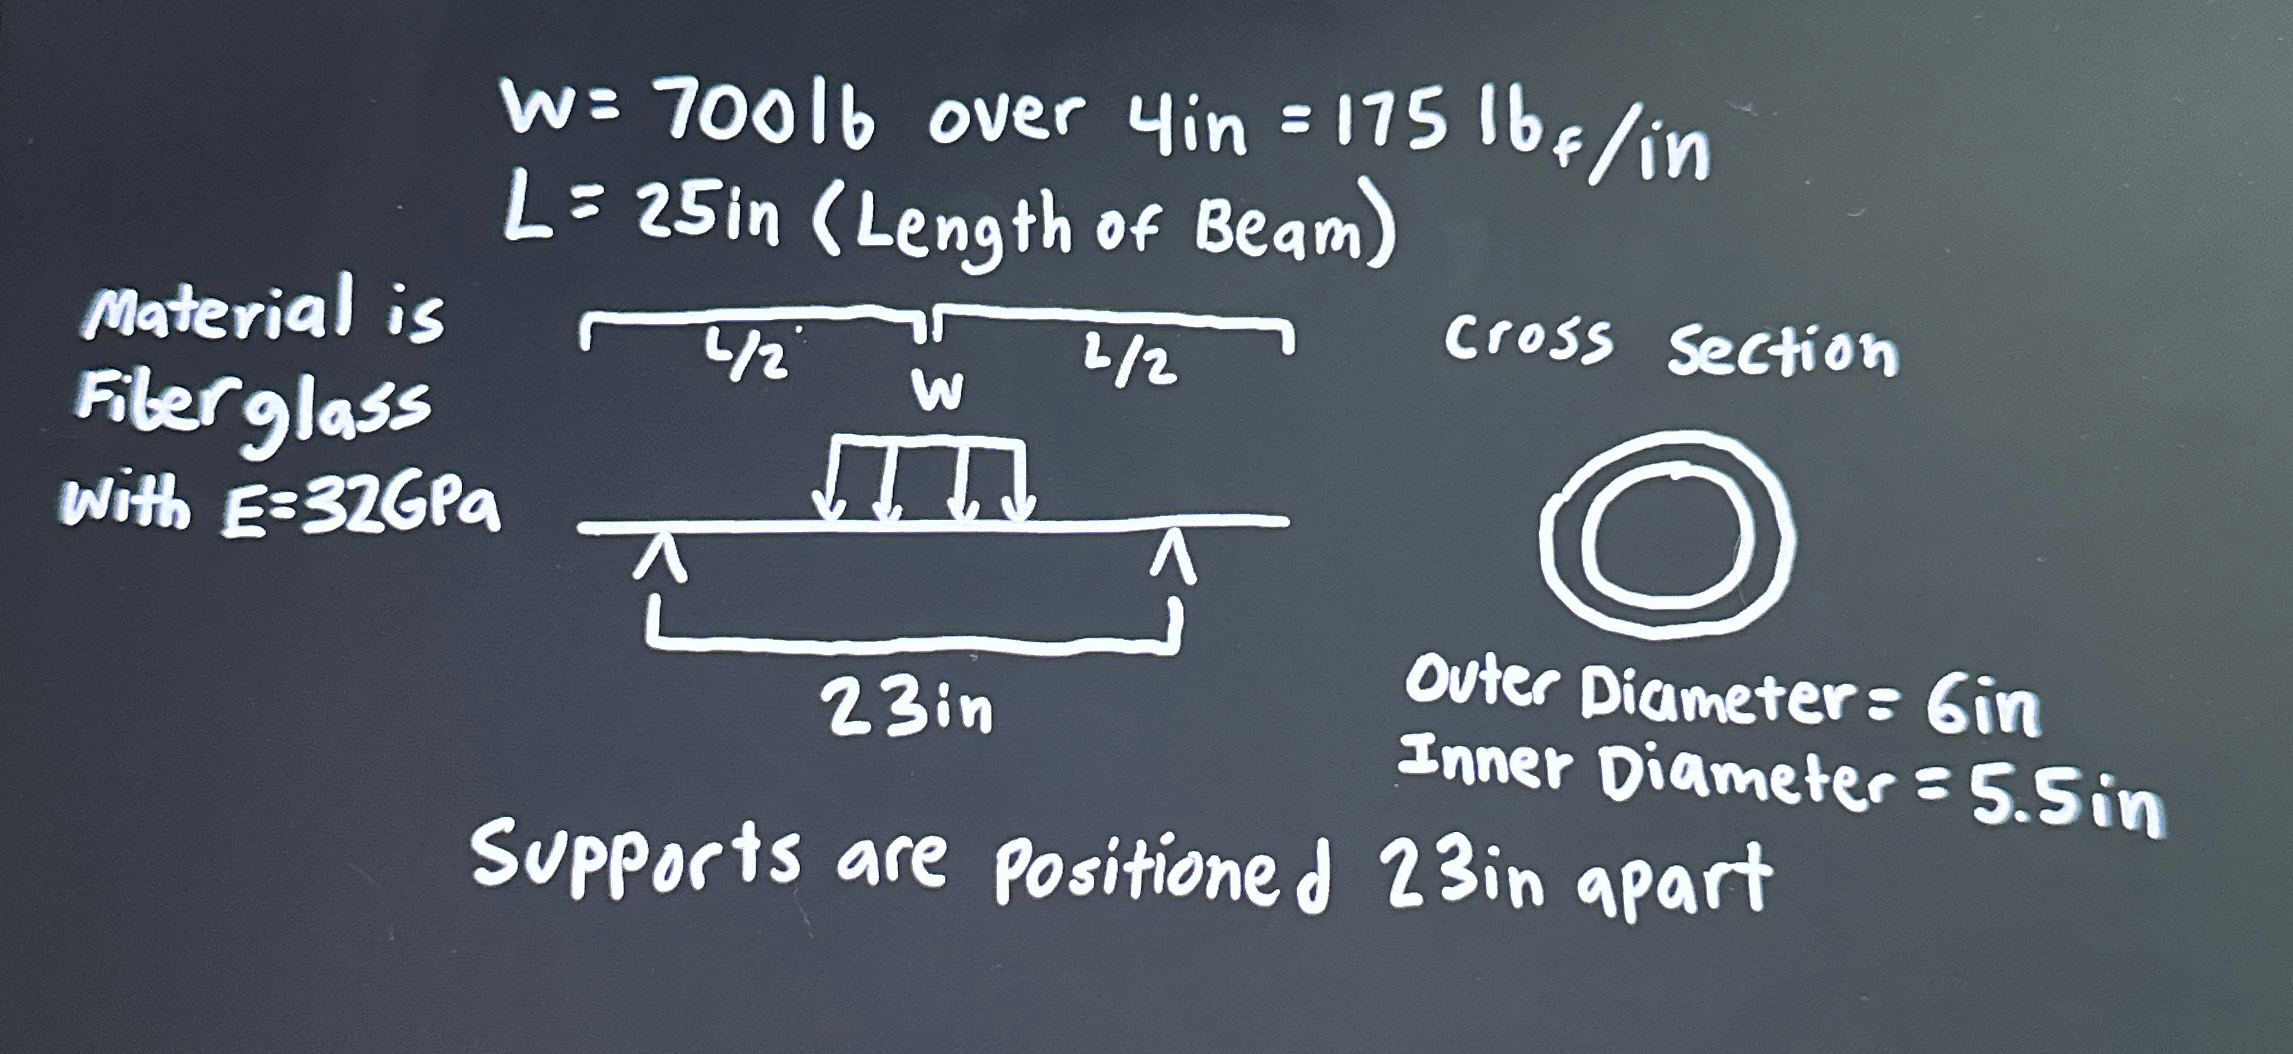 W= 700lb over 4in = 175 lbf/in
L= 25in (Length of Beam)
Material is
Fiberglass
With E=32GPa
L/2
L/2
W
Cross Section
23in
Outer Diameter= 6in
Inner Diameter = 5.5in
Supports are Positioned 23in apart